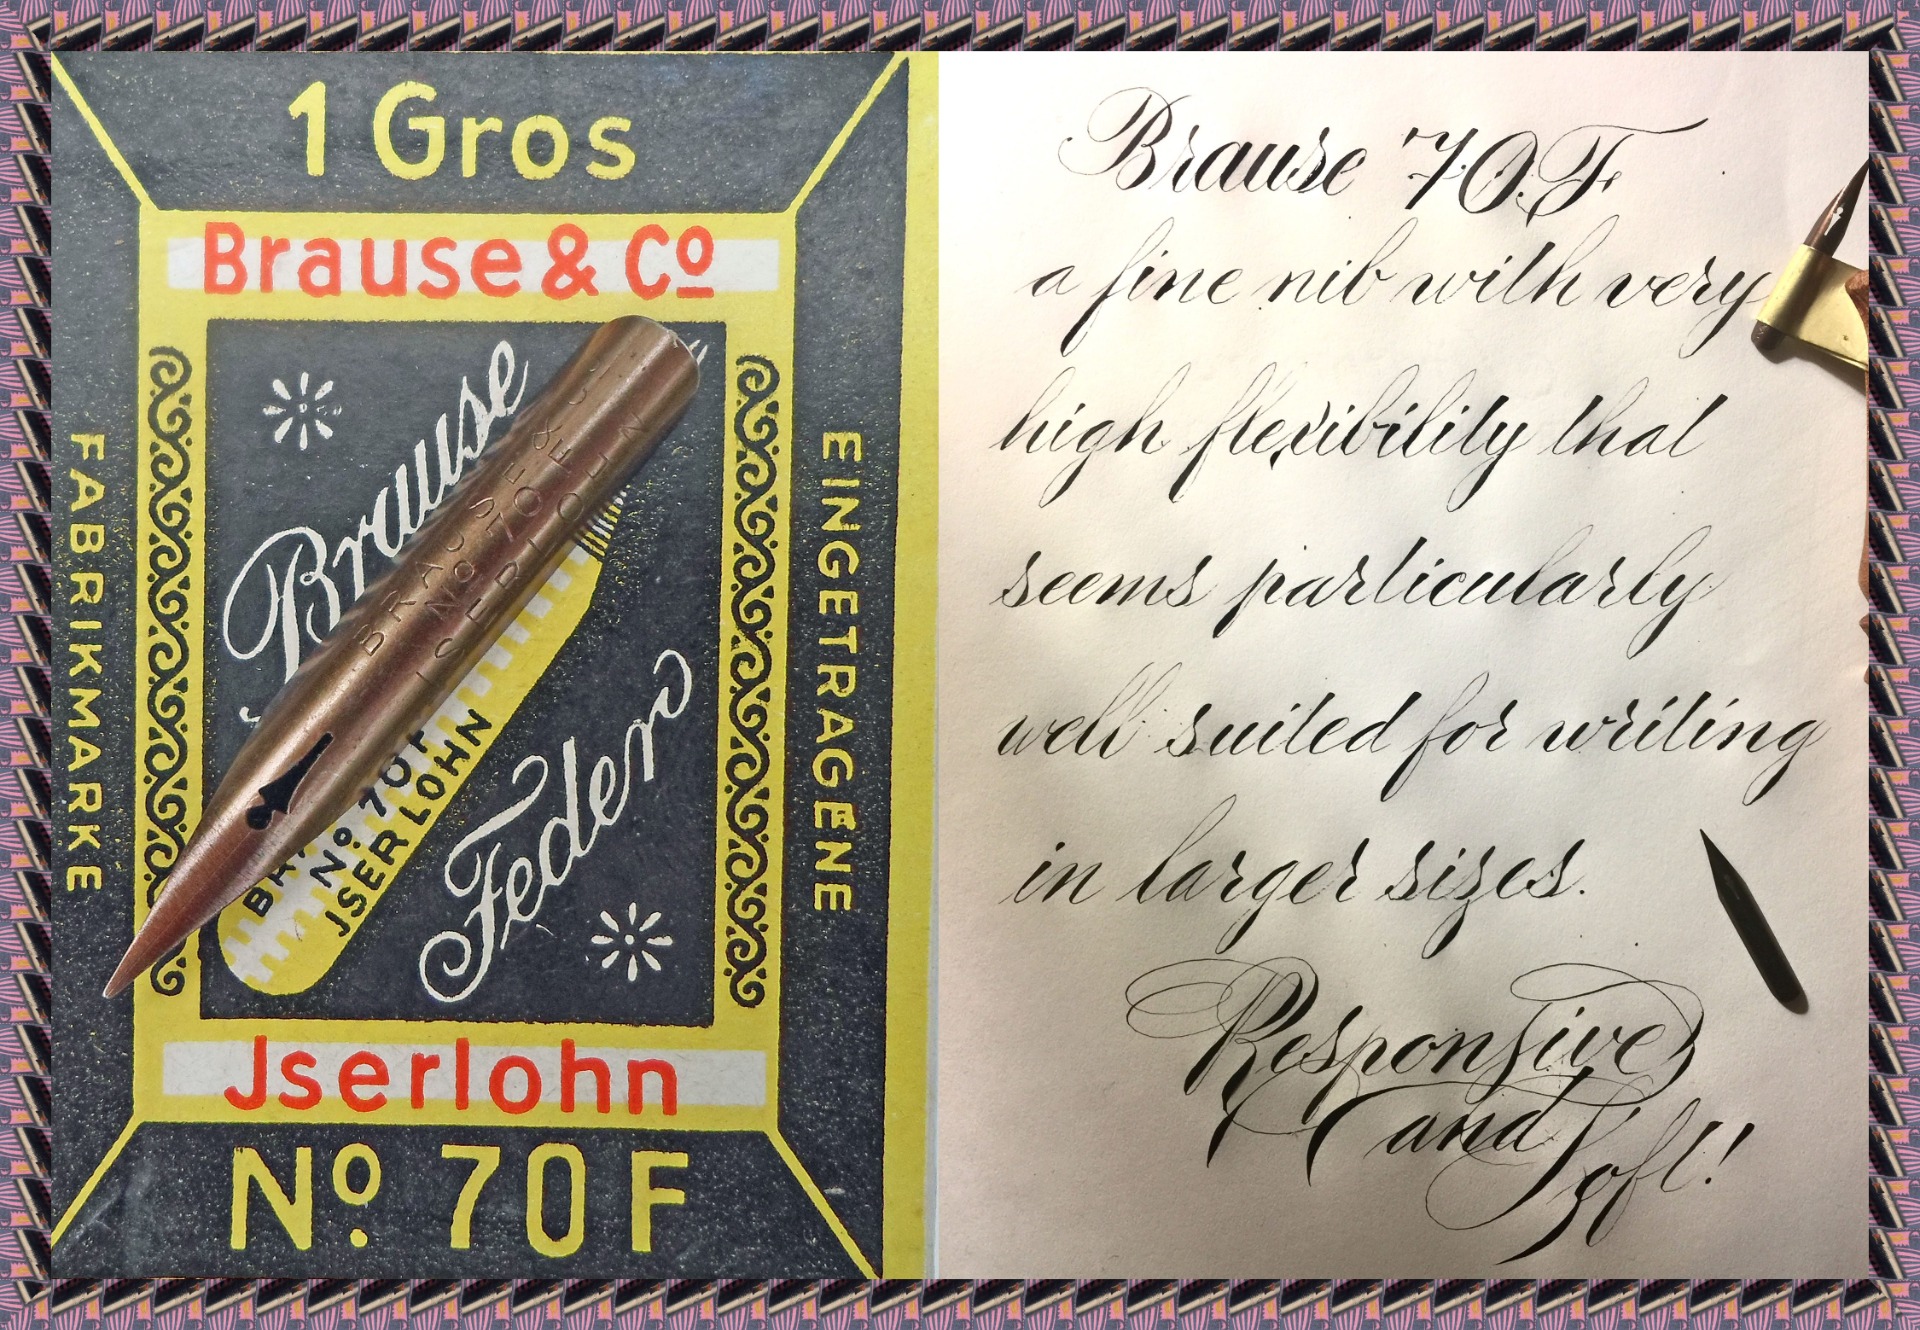 1 Gros
Brause & Cº
Brause
Federn
BRAUSE &
Nº 70
ISERLOHN
Nº 70F
JSERLOHN
FABRIKMARKE
EINGETRAGENE
Jserlohn
Nº 70F
Brause 70.F
a fine nib with very
high flexibility that
seems particularly
well suited for writing
in larger sizes.
Responsive
and
Soft!